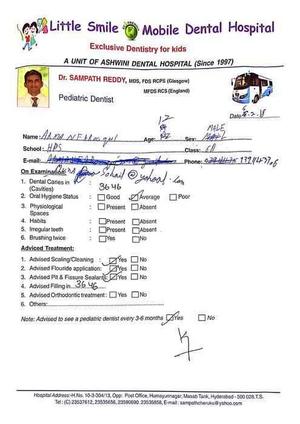 Little Smile Mobile Dental Hospital
Exclusive Dentistry for kids
A UNIT OF ASHWINI DENTAL HOSPITAL (Since 1997)
Dr. SAMPATH REDDY, MDS, FDS RCPS (Glasgow)
MFDS RCS (England)
Pediatric Dentist
Date
Name: Age: 12 Sex: MALE
School: HPS Class:
E-mail: Phone:
On Examination:
1. Dental Caries in : 36 46
(Cavities)
2. Oral Hygiene Status : Good Average Poor
3. Physiological : Present Absent
Spaces
4. Habits : Present Absent
5. Irregular Teeth : Present Absent
6. Brushing twice : Yes No
Adviced Treatment:
1. Advised Scaling/Cleaning : Yes No
2. Advised Flouride application: Yes No
3. Advised Pit & Fissure Sealants: Yes No
4. Advised Filling in 36 46
5. Advised Orthodontic treatment : Yes No
6. Others:
Note: Advised to see a pediatric dentist every 3-6 months Yes No
Hospital Address: H.No. 10-3-304/13, Opp: Post Office, Humayunnagar, Masab Tank, Hyderabad - 500 028.T.S.
Tel : (C) 23537612, 23535656, 23590690, 23535658, E-mail : sampathcheruku@yahoo.com